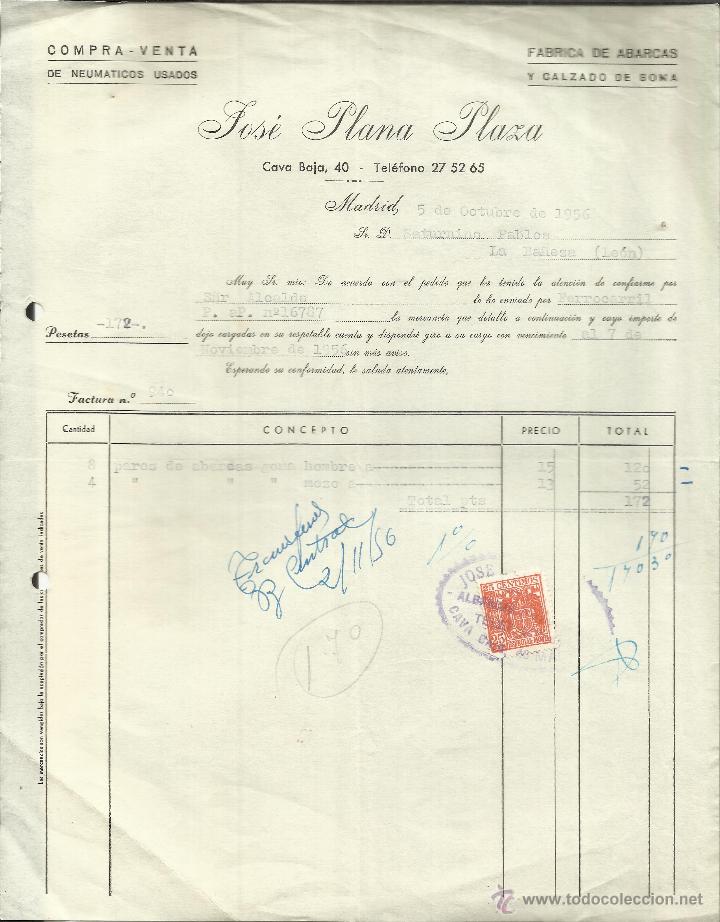 COMPRA - VENTA
DE NEUMATICOS USADOS
FABRICA DE ABARCAS
Y CALZADO DE GOMA
José Plana Plaza
Cava Baja, 40 - Teléfono 27 52 65
Madrid, 5 de Octubre de 1956
Sr. D. Saturnino Pablos
La Bañeza (León)
Muy Sr. mio: De acuerdo con el pedido que ha tenido la atención de confiarme por
Snr Alcalde le he enviado por Ferrocarril
P. aP. nº16787 la mercancia que detallo a continuación y cuyo importe de
Pesetas -172-.
dejo cargadas en su respetable cuenta y dispondré giro a su cargo con vencimiento al 7 de
Noviembre de 1956 sin más aviso.
Esperando su conformidad, le saluda atentamente,
Factura n.º 940
Cantidad CONCEPTO PRECIO TOTAL
8 pares de abarcas goma hombre a 15 120
4 " " " mozo a 13 52
Total pts 172
Central
2/11/56
1%
170
170
JOSE
CAVA
25 CENTIMOS
25
www.todocoleccion.net